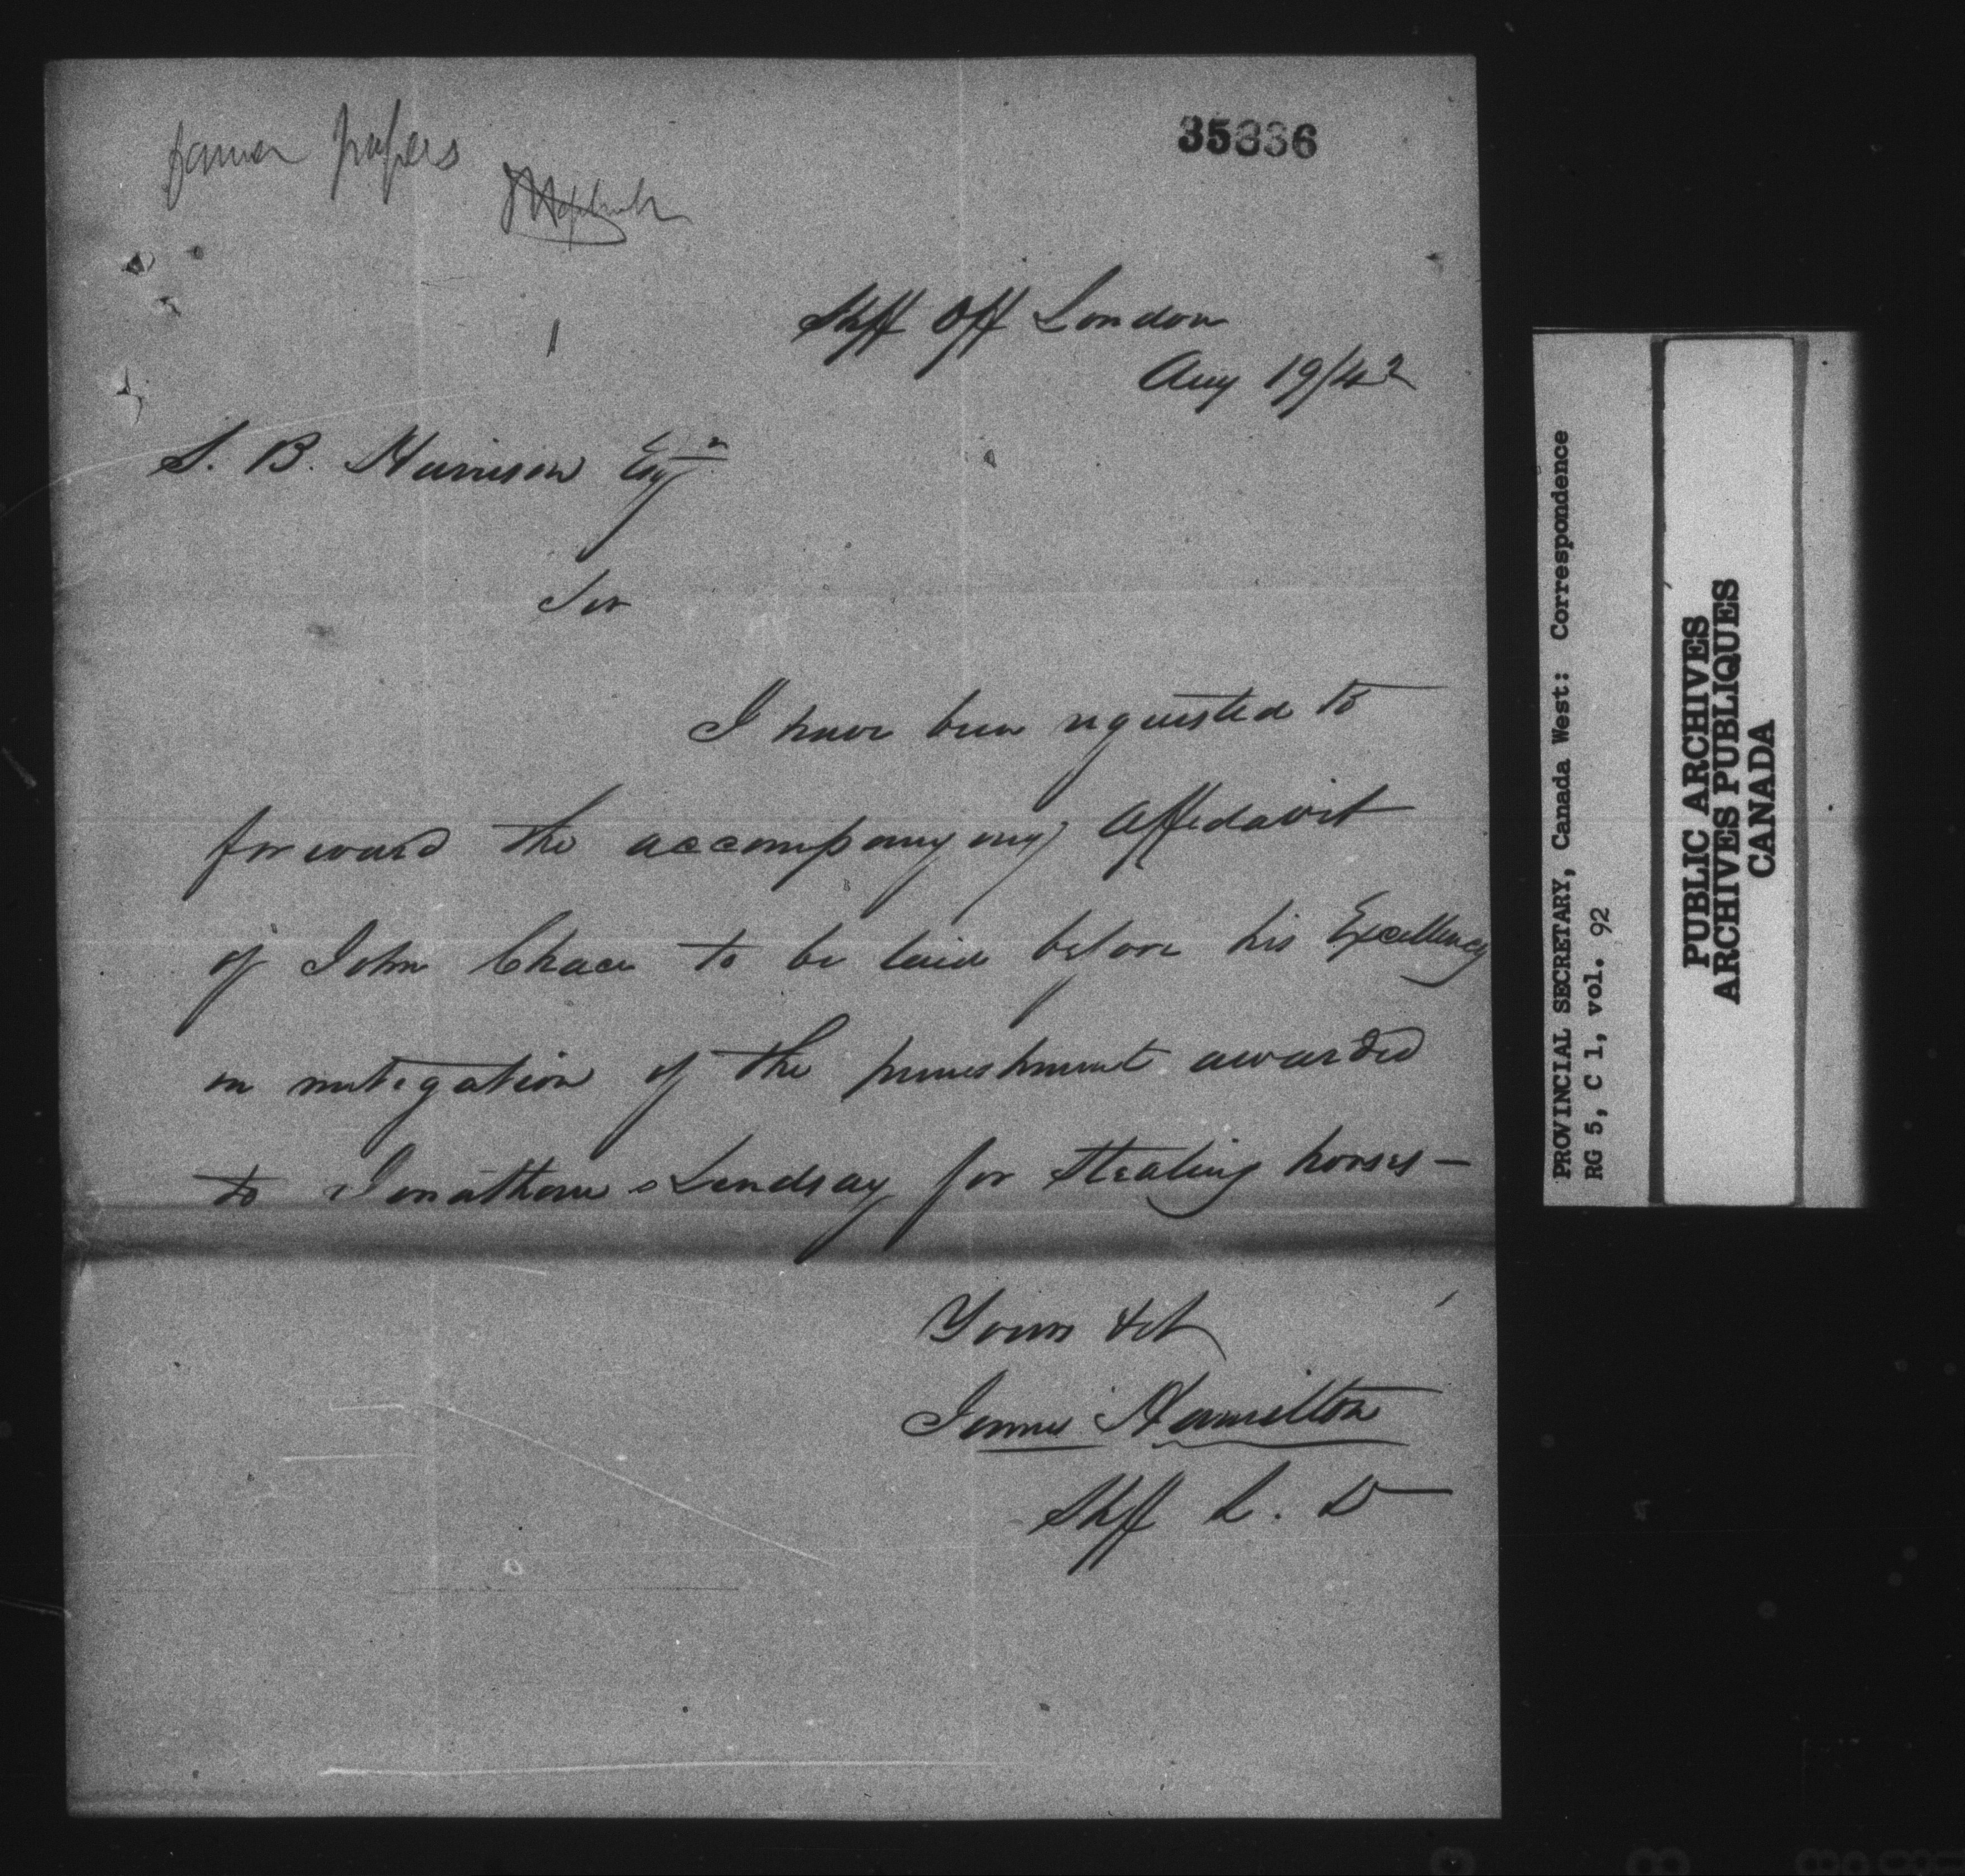 former papers
35336
Shff Off London
Aug 19/42
S. B. Harrison Esqr
Sir
I have been requested to
forward the accompanying Affidavit
of John Chace to be laid before his Excellency
in mitigation of the punishment awarded
to Jonathan Lindsay for Stealing horses —
Yours &c
James Hamilton
Shff L. D
PROVINCIAL SECRETARY, Canada West: Correspondence
RG 5, C 1, vol. 92
PUBLIC ARCHIVES
ARCHIVES PUBLIQUES
CANADA